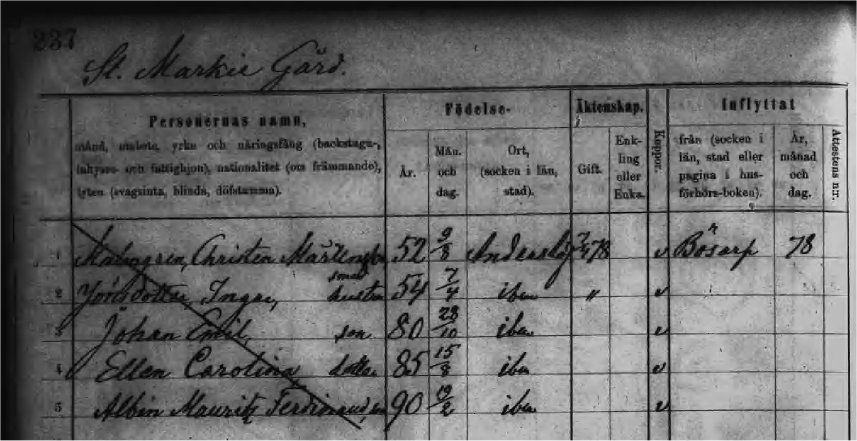 237
St. Markie Gård.
Personernas namn, Födelse- Äktenskap. Koppor. Inflyttat Attestens n:r.
stånd, embete, yrke och näringsfång (backstugu-, inhyses- och fattighjon), nationalitet (om främmande), lyten (svagsinta, blinda, döfstumma). År. Mån. och dag. Ort, (socken i län, stad). Gift. Enkling eller Enka. från (socken i län, stad eller pagina i husförhörs-boken). År, månad och dag.
1 Malmgren, Christen Mårtensson 52 9/8 Anderslöf 78 v Bösarp 78
smed
2 Jönsdotter, Ingar, hustru 54 7/4 ibm " v
3 Johan Emil, son 80 28/10 ibm v
4 Ellen Carolina dotter 85 15/8 ibm v
5 Albin Mauritz Ferdinand, son 90 ibm v